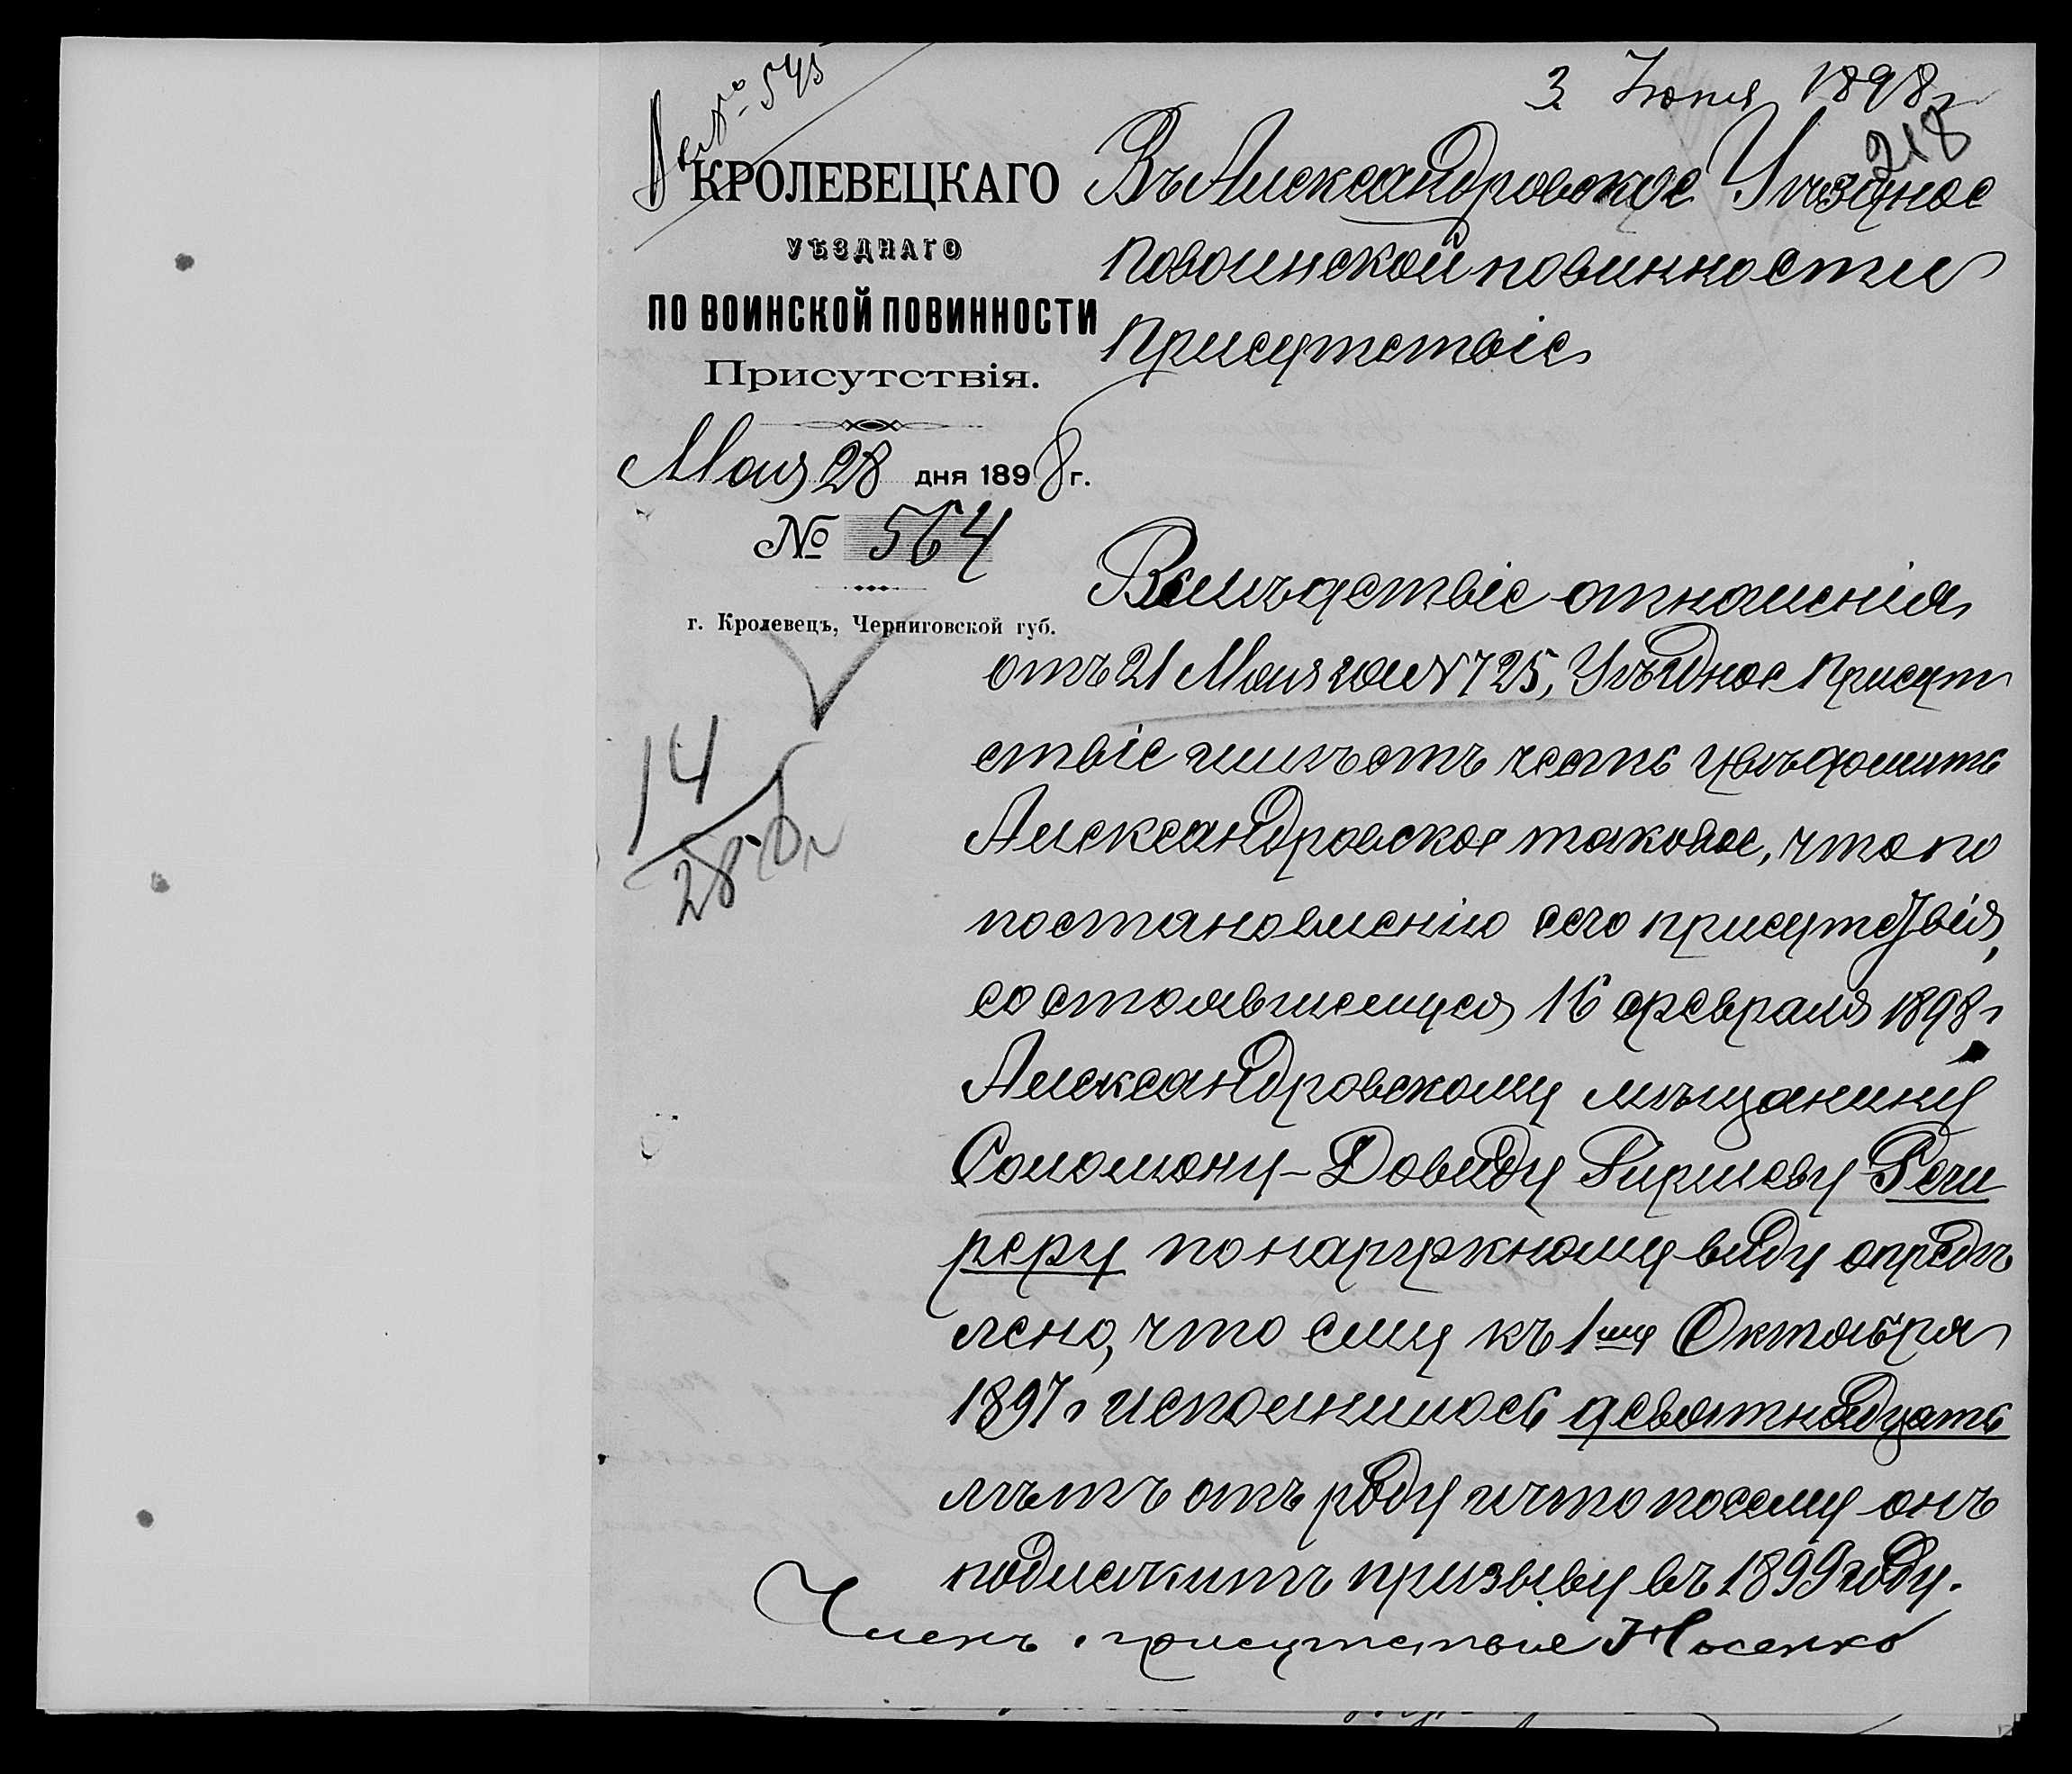 № 545
3 Июня 1898 г
218
КРОЛЕВЕЦКАГО
УѢЗДНАГО
ПО ВОИНСКОЙ ПОВИННОСТИ
Присутствія.
Мая 28 дня 1898 г.
№ 564
г. Кролевецъ, Черниговской губ.
14
285
Въ Александровское Уѣздное
по воинской повинности
Присутствіе
Вслѣдствіе отношенія
отъ 21 Мая за № 725, Уѣздное Присут
ствіе имѣетъ честь увѣдомить
Александровское таковое, что по
постановленію сего присутствія,
состоявшемуся 16 февраля 1898 г
Александровскому мѣщанину
Соломону-Довиду Гиршеву
реру по наружному виду опредѣ
лено, что ему къ 1му Октября
1897 г исполнилось девятнадцать
лѣтъ отъ роду и что посему онъ
подлежитъ призыву въ 1899 году.
Членъ присутствія Носенко